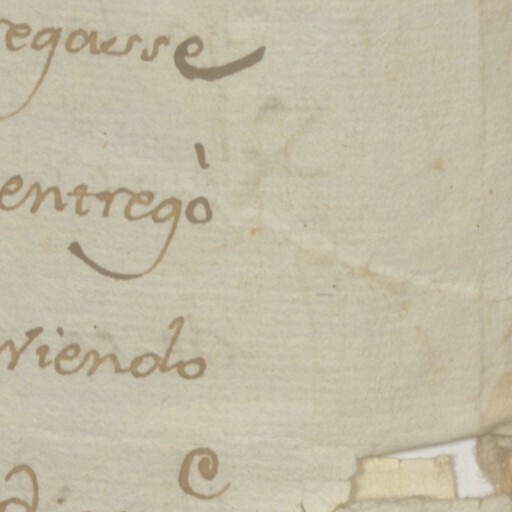 egasse
entregò
viendo